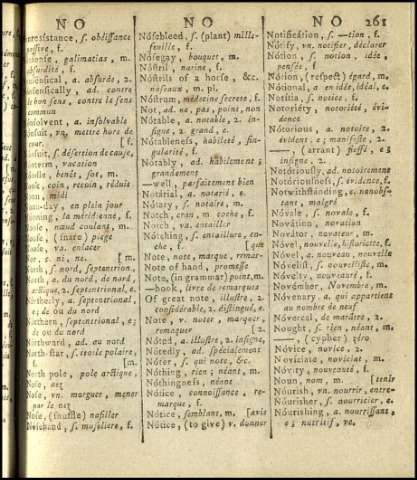 NO NO NO 261
resistance, s. obéissance
passive, f.
galimatias, m.
absurdité, f.
a. absurde, 2.
ad. contre
le bon sens, contre le sens
commun
insolvent, a. insolvable
Nonsuit, vn. mettre hors de
cour. [f.
Nonsuit, s. désertion de cause,
term, vacation
benêt, sot, m.
coin, recoin, réduit
Noon, midi
day, en plein jour
la méridienne, f.
Noose, nœud coulant, m.
(snare) piege
va. enlacer
Nor, c. ni, ne. [m.
North, s. nord, septentrion,
a. du nord, de nord,
2. septentrional, e.
Northerly, a. septentrional,
e; de ou du nord
Northern, septentrional, e;
de ou du nord
Northward, ad. au nord
North-star, s. étoile polaire,
f. [m.
North pole, pole arctique,
Nose, nez
Nose, vn. morguer, mener
par le nez
Nose, (snuffle) nasiller
s. museliere, f.
Nósebleed, s. (plant) mille-
feuille, f.
Nósegay, bouquet, m.
Nóstril, narine, f.
Nóstrils of a horse, &c.
naseaux, m. pl.
Nóstrum, médecine secrete, f.
Not, ad. ne, pas, point, non
Nótable, a. notable, 2. in-
signe, 2. grand, e.
Nótableness, habileté, sin-
gularité, f.
Nótably, ad. habilement;
grandement
—well, parfaitement bien
Notárial, a. notarié, e.
Nótary, s. notaire, m.
Notch, cran, m. coche, f.
Notch, va. entailler
Nótching, s. entaillure, en-
che, f. [que
Note, note, marque, remar-
Note of hand, promesse
Note, (in grammar) point, m.
—book, livre de remarques
Of great note, illustre, 2.
considérable, 2. distingué, e.
Note, v. noter, marquer,
remarquer [2.
Nóted, a. illustre, 2. insigne,
Nótedly, ad. spécialement
Nóter, s. qui note, &c.
Nóthing, rien; néant, m.
Nóthingness, néant
Nótice, connoissance, re-
marque, f.
Nótice, semblant, m. [avis
Nótice, (to give) v. donner
Notificátion, s. —tion, f.
Nótify, vn. notifier, déclarer
Nótion, s. notion, idée,
pensée, f.
Nótion, (respect) égard, m.
Nótional, a. en idée, idéal, e.
Notítia, s. notice, f.
Notoríety, notoriété, évi-
dence
Notórious, a. notoire, 2.
évident, e; manifeste, 2.
—, (arrant) fieffé, e;
insigne, 2.
Notóriously, ad. notoirement
Notóriousness, s. évidence, f.
Notwithstánding, c. nonobs-
tant, malgré
Nóvale, s. novale, f.
Nováṭion, novation
Nováṭor, novateur, m.
Nóvel, nouvelle, historiette, f.
Nóvel, a. nouveau, nouvelle
Nóvelist, s. nouvelliste, m.
Nóvelty, nouveauté, f.
Novémber, Novembre, m.
Nóvenary, a. qui appartient
au nombre de neuf
Novércal, de marâtre, 2.
Nought, s. rien, néant, m.
—, (cypher) zéro
Nóvice, novice, 2.
Novíciate, noviciat, m.
Nóvity, nouveauté, f.
Noun, nom, m. [tenir
Nóurish, vn. nourrir, entre-
Nóurisher, s. nourricier, e.
Nóurishing, a. nourrissant,
e; nutritif, ve.